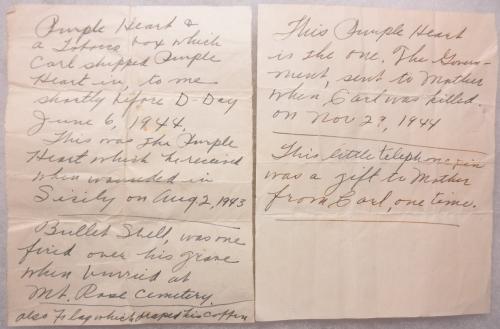 Purple Heart &
a Tobacco box which
Carl shipped Purple
Heart in, to me
shortly before D-Day
June 6, 1944.
This was the Purple
Heart which he received
when wounded in
Sicily on Aug 2, 1943
Bullet Shell, was one
fired over his grave
when burried at
Mt. Rose Cemetery.
also Flag which draped his coffin
This Purple Heart
is the one. The Govern-
ment, sent to Mother
when, Carl was killed.
on Nov 1944
This little telephone pin
was a gift to Mother
from Carl, one time.